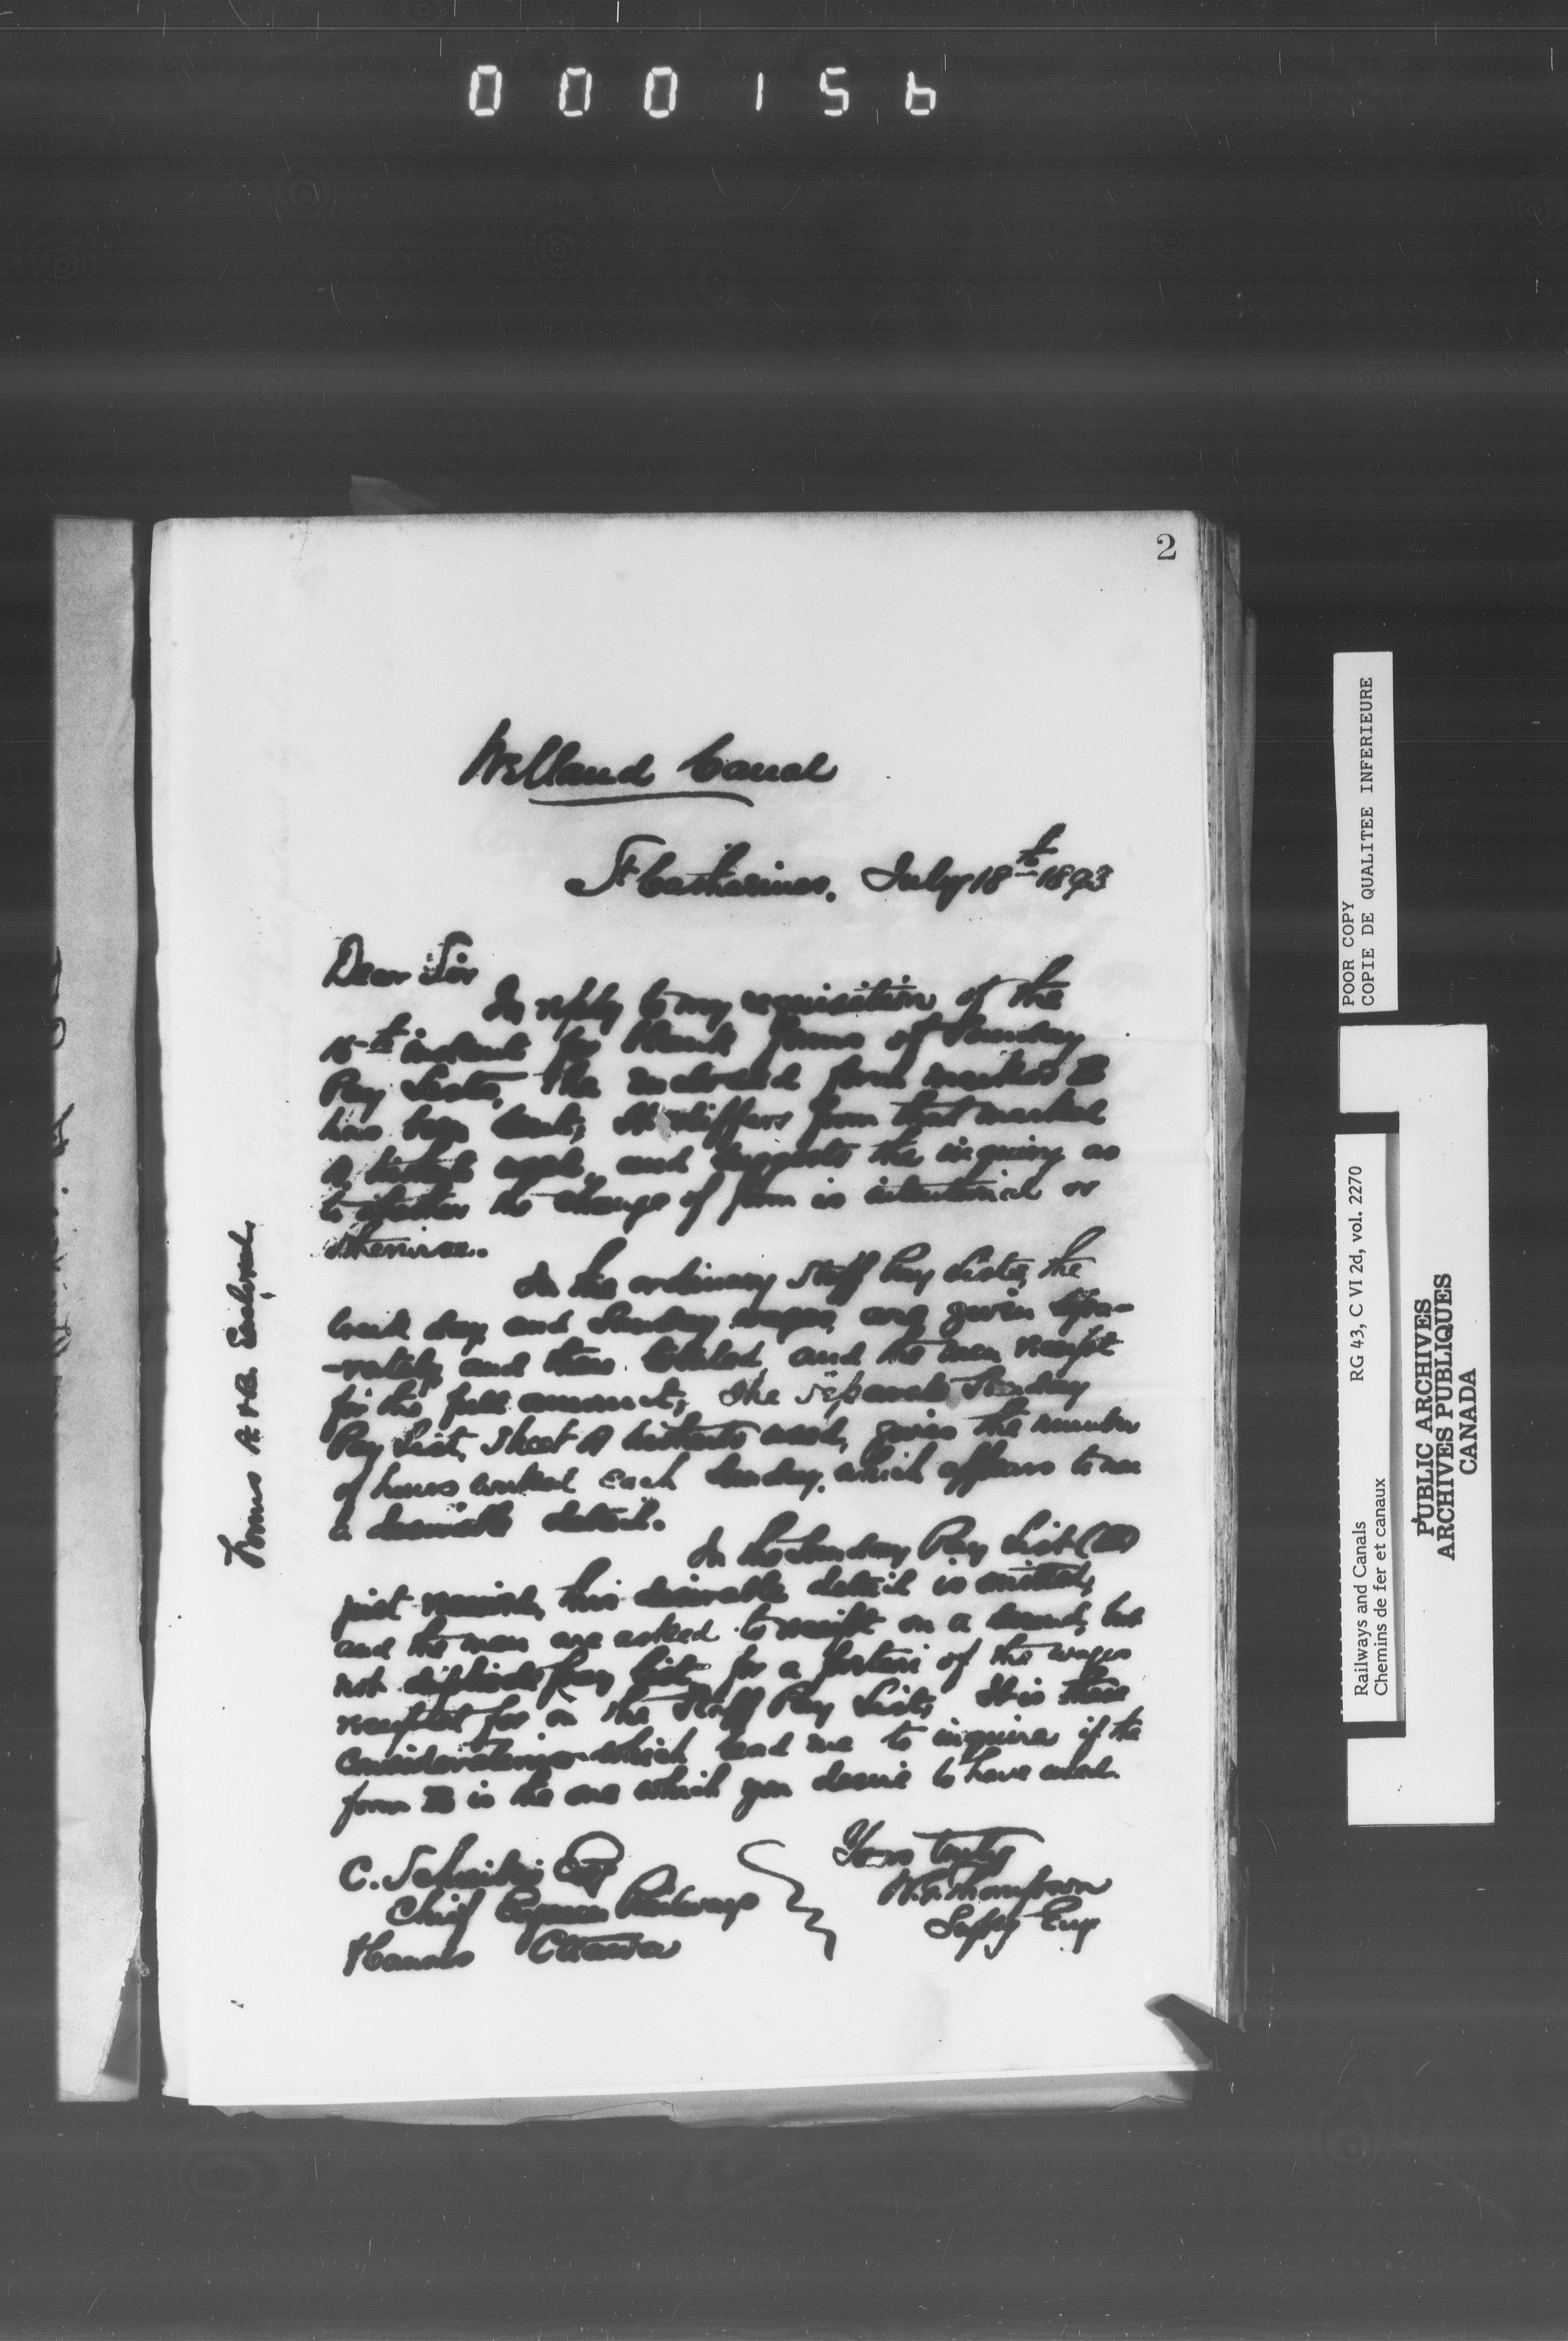 000156
2
Welland Canal
St Catharines, July 18th 1893
Dear Sir
In reply to my requisition of the
15th instant for blank forms of Sunday
Pay Lists, the enclosed form marked B
has been sent; It differs from that marked
A hitherto used, and suggests the inquiry as
to whether the change of form is intentional or
otherwise.
In the ordinary Staff Pay Lists, the
week day and Sunday wages are given sepa-
-rately, and then totaled, and the men receipt
for the full amount; The separate Sunday
Pay List, sheet A hitherto used, gives the number
of hours worked each Sunday, which appears to me
a desirable detail.
In the Sunday Pay List (B)
just received, this desirable detail is omitted,
and the men are asked to receipt on a second, but
not duplicate pay list, for a portion of the wages
receipted for on the Staff Pay List; It is these
considerations which lead me to inquire if the
form B is the one which you desire to have used.
Yours truly
W.G. Thompson
Supt'g Eng
C. Schreiber Esq
Chief Engineer Railways
& Canals Ottawa
Forms A & B. Enclosed.
POOR COPY
COPIE DE QUALITEE INFERIEURE
Railways and Canals RG 43, C VI 2d, vol. 2270
Chemins de fer et canaux
PUBLIC ARCHIVES
ARCHIVES PUBLIQUES
CANADA